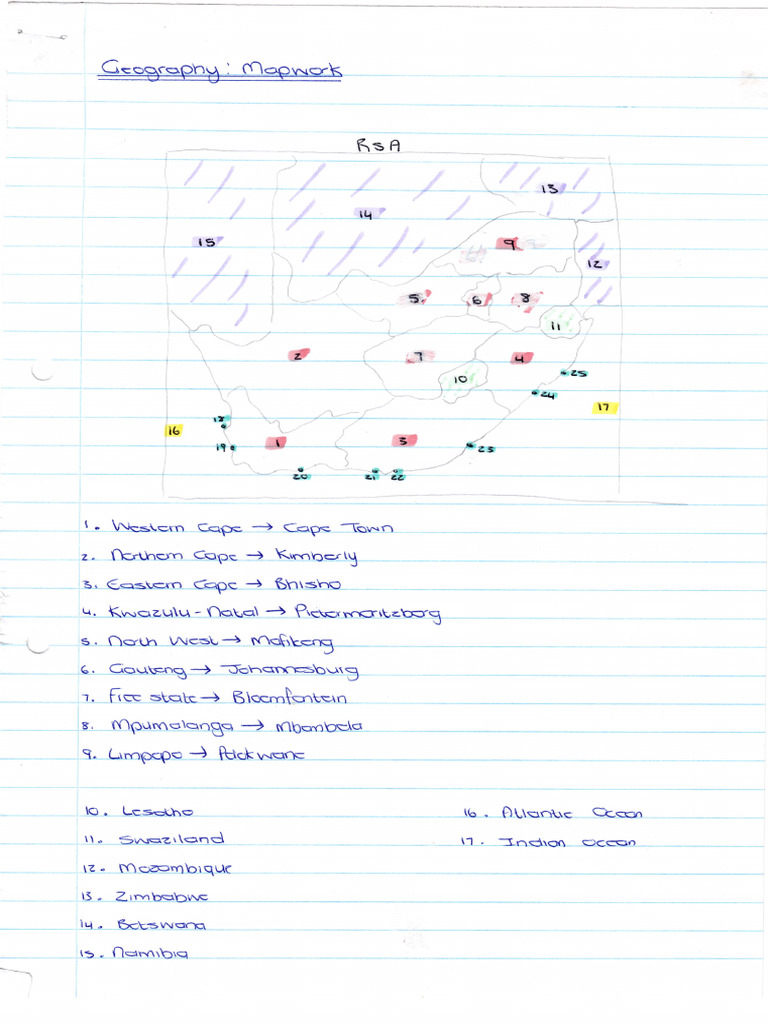 Geography: Mapwork
RSA
13
14
15
9
12
5
6
8
11
2
7
4
10
25
24
17
18
16
19
1
3
23
20
21
22
1. Western Cape → Cape Town
2. Northern Cape → Kimberly
3. Eastern Cape → Bhisho
4. Kwazulu-Natal → Pietermaritzberg
5. North West → Mafikeng
6. Gauteng → Johannesburg
7. Free state → Bloemfontein
8. Mpumalanga → Mbombela
9. Limpopo → Polokwane
10. Lesotho
16. Atlantic Ocean
11. Swaziland
17. Indian Ocean
12. Mozambique
13. Zimbabwe
14. Botswana
15. Namibia